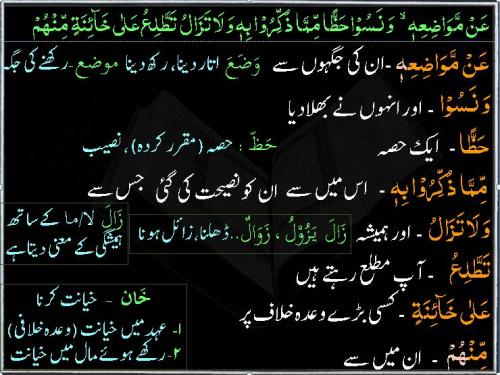 عَنْ مَّوَاضِعِهٖ ۙ وَنَسُوْا حَظًّا مِّمَّا ذُكِّرُوْا بِهٖ وَلَا تَزَالُ تَطَّلِعُ عَلٰى خَآئِنَةٍ مِّنْهُمْ
عَنْ مَّوَاضِعِهٖ - ان کی جگہوں سے وَضَعَ اتار دینا، رکھ دینا موضع - رکھنے کی جگہ
وَنَسُوْا - اور انہوں نے بھلا دیا
حَظًّا - ایک حصہ حَظّ : حصہ (مقرر کردہ)، نصیب
مِّمَّا ذُكِّرُوْا بِهٖ - اس میں سے ان کو نصیحت کی گئی جس سے
وَلَا تَزَالُ - اور ہمیشہ زَالَ يَزُوْلُ ، زَوَالٌ.. ڈھلنا، زائل ہونا
زَالَ لا/ما کے ساتھ
ہمیشگی کے معنی دیتا ہے
تَطَّلِعُ - آپ مطلع رہتے ہیں
عَلٰى خَآئِنَةٍ - کسی بڑے وعدہ خلاف پر
مِّنْهُمْ - ان میں سے
خَان - خیانت کرنا
۱- عہد میں خیانت (وعدہ خلافی)
۲- رکھے ہوئے مال میں خیانت